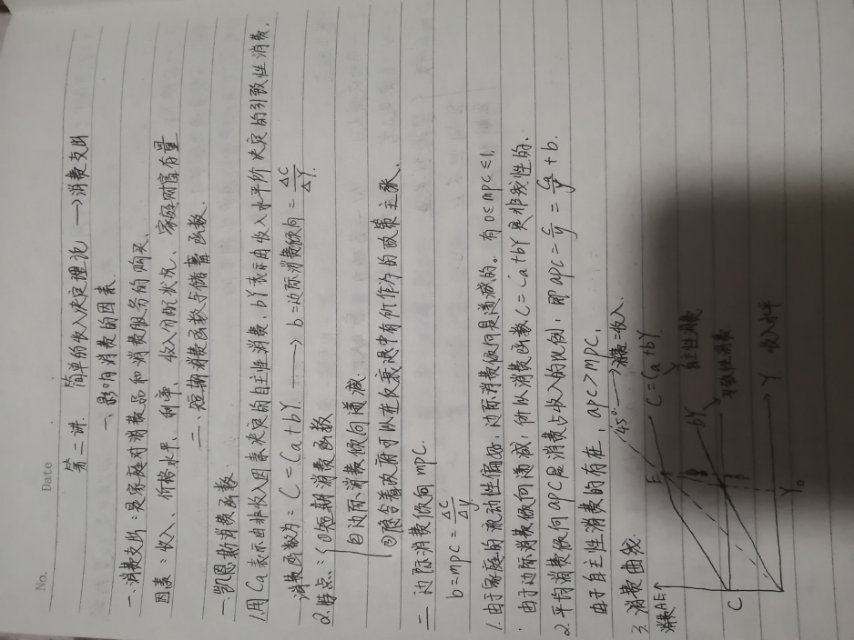 No.
Date
第二讲. 简单的收入决定理论 → 消费支出
一、影响消费的因素.
一、消费支出：是家庭对消费品和消费服务的购买.
因素：收入、价格水平、利率、收入分配状况、家庭财富存量
二、短期消费函数与储蓄函数.
一.凯恩斯消费函数.
1.用Ca表示由非收入因素决定的自主性消费，bY表示由收入水平所决定的引致性消费.
消费函数为：C = Ca + bY. → b=边际消费倾向 = ΔC/ΔY.
2.特点：①短期消费函数
②边际消费倾向递减.
③隐含着政府可以在反衰退中有所作为的政策主张.
二 边际消费倾向 MPC.
b = MPC = ΔC/ΔY.
1.由于家庭的流动性偏好，边际消费倾向是递减的。有 0≤MPC≤1.
由于边际消费倾向递减，所以消费函数C=Ca+bY是非线性的.
2.平均消费倾向APC是消费占收入的比例，即APC = C/Y = Ca/Y + b.
由于自主性消费的存在，APC > MPC.
3.消费曲线.
消费AE↑
45°. → 消费=收入.
E
C = Ca + bY.
自主性消费
bY
引致性消费
C
Y₀
Y 收入水平